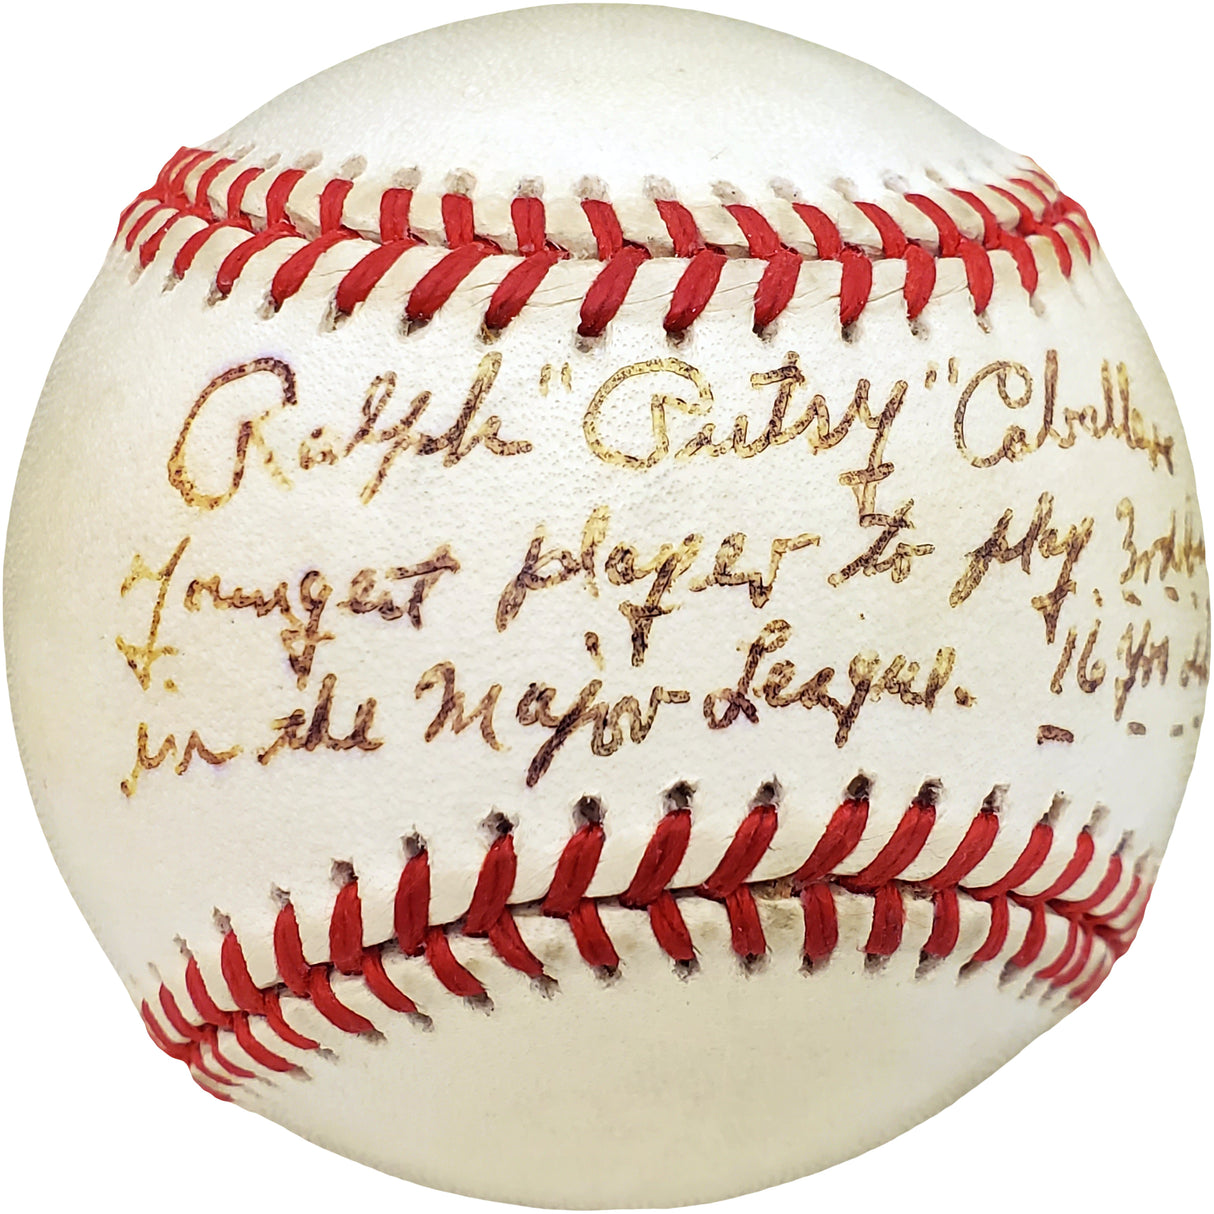 Ralph "Putsy" Caballero
Youngest player to play 3rd
in the Major League. 16 Yrs